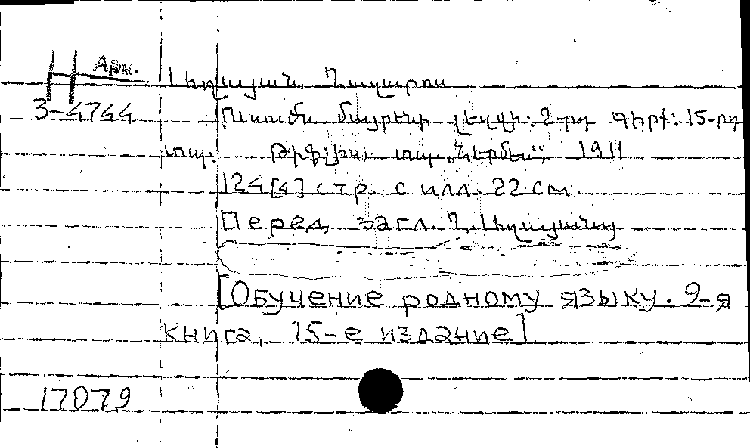 Н Арм.
3-4744
Աղայան Ղազարոս
Ուսումն մայրենի լեզվի. 2-րդ գիրք. 15-րդ
տպ. Թիֆլիս, տպ. 1911
124[4] стр. с илл. 22 см.
Перед загл. Ղ. Աղայանց
[Обучение родному языку. 2-я
книга, 15-е издание]
17079